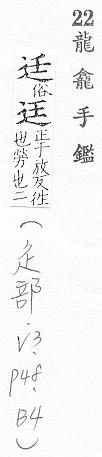 22 龍龕手鑑
俗迋正于放反往也勞也二
(辵部.V3.P48.B4)